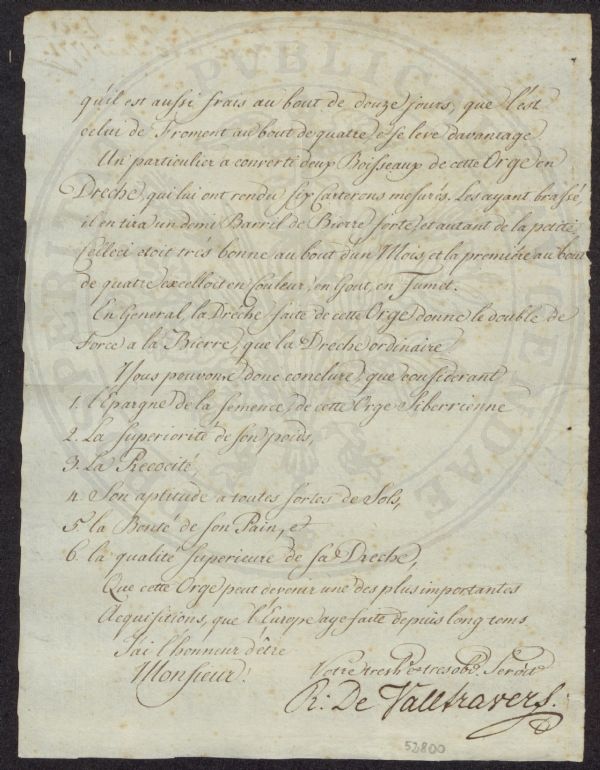 qu'il est aussi frais au bout de douze jours, que l'est
celui de Froment au bout de quatre et se leve davantage.
Un particulier a converti deux Boisseaux de cette Orge en
Dreche, qui lui ont rendu six Carterons mesurés. Les ayant brassé,
il en tira un demi Barril de Bierre forte, et autant de la petite.
Celleci etoit trés bonne au bout d'un Mois, et la premiére au bout
de quatre excelloit en Couleur, en Gout, en Fumet.
En General, la Dreche faite de cette Orge donne le double de
Force a la Bierre, que la Dreche ordinaire
Nous pouvons donc conclure, que considerant
1. l'Epargne de la semence, de cette Orge Siberrienne
2. La superiorité de son poids,
3. La Recocité,
4. Son aptitude a toutes sortes de Sols,
5. la Bonté de son Pain, et
6. la qualité superieure de sa Dreche,
Que cette Orge peut devenir une des plus importantes
Acquisitions, que l'Europe aye faite depuis long tems
J'ai l'honneur d'être
Monsieur! Votre tres h. et tres ob. Servit
R: De Valltravers.
52800